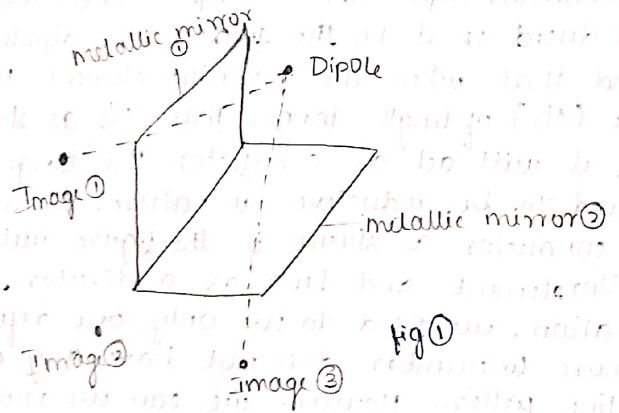 metallic mirror
①
Dipole
Image ①
metallic mirror ②
Image ②
fig ①
Image ③